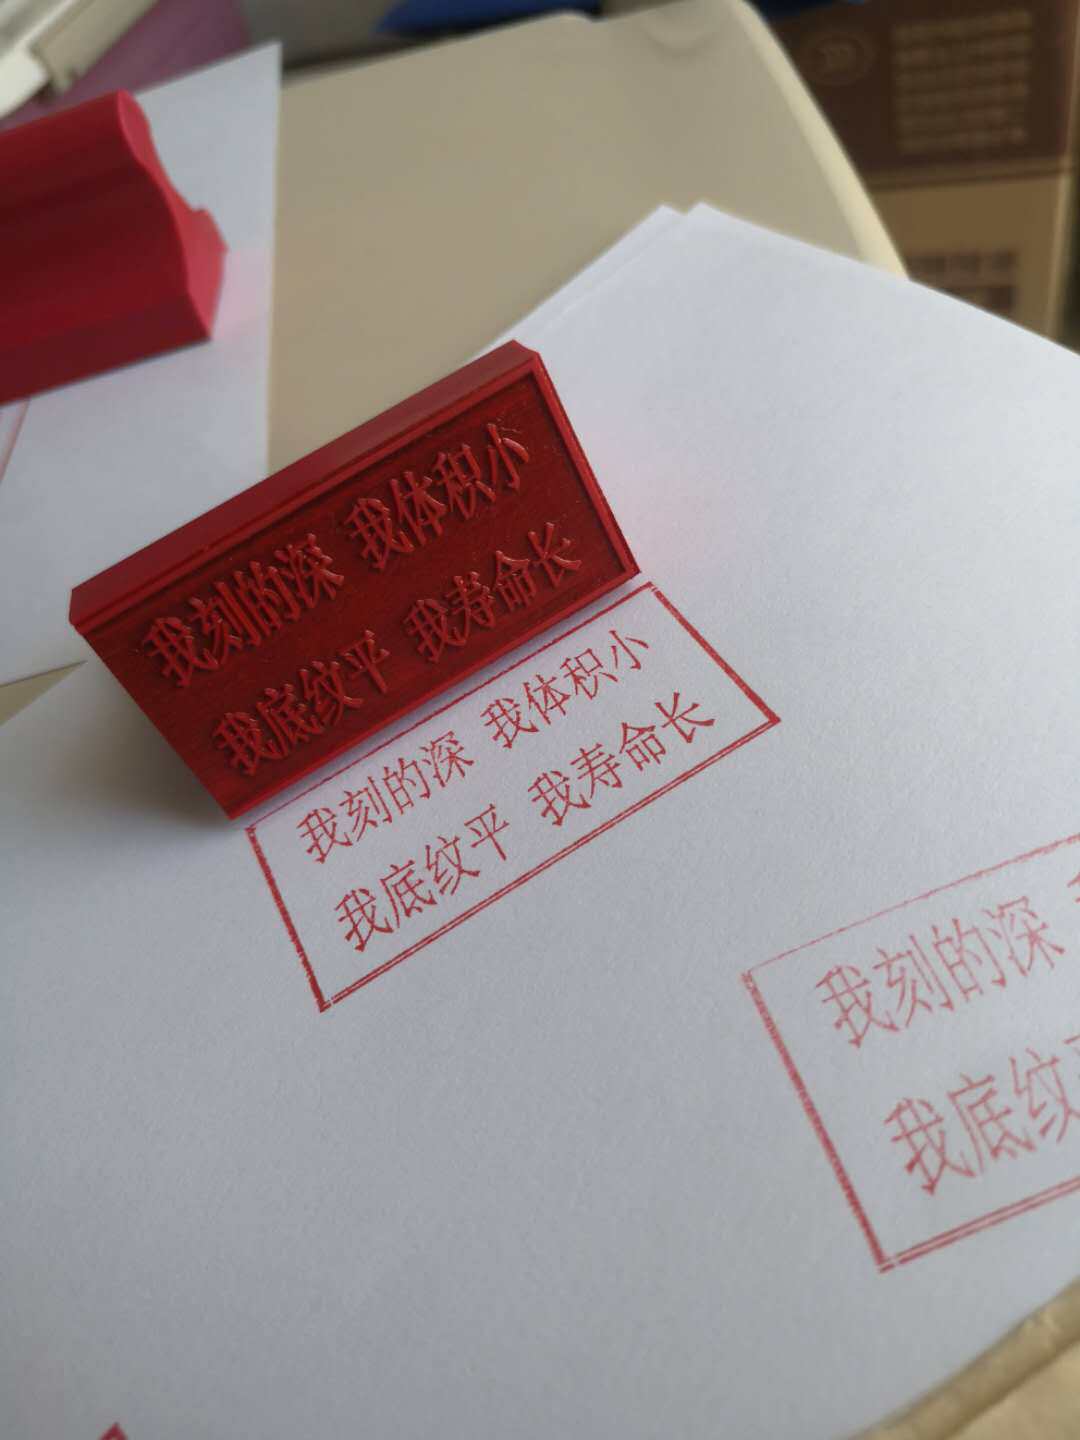 我刻的深 我体积小
我底纹平 我寿命长
我刻的深 我体积小
我底纹平 我寿命长
我刻的深
我底纹平